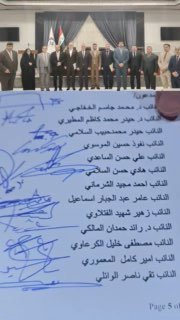 النائب د. محمد جاسم الخفاجي
النائب د. حيدر محمد كاظم المطيري
النائب حيدر محمدحبيب السلامي
النائب نفوذ حسين الموسوي
النائب علي حسن الساعدي
النائب هادي حسن السلامي
النائب احمد مجيد الشرماني
النائب عامر عبد الجبار اسماعيل
النائب زهير شهيد الفتلاوي
النائب د. رائد حمدان المالكي
النائب مصطفى خليل الكرعاوي
النائب امير كامل المعموري
النائب تقي ناصر الوائلي
Page 5 of